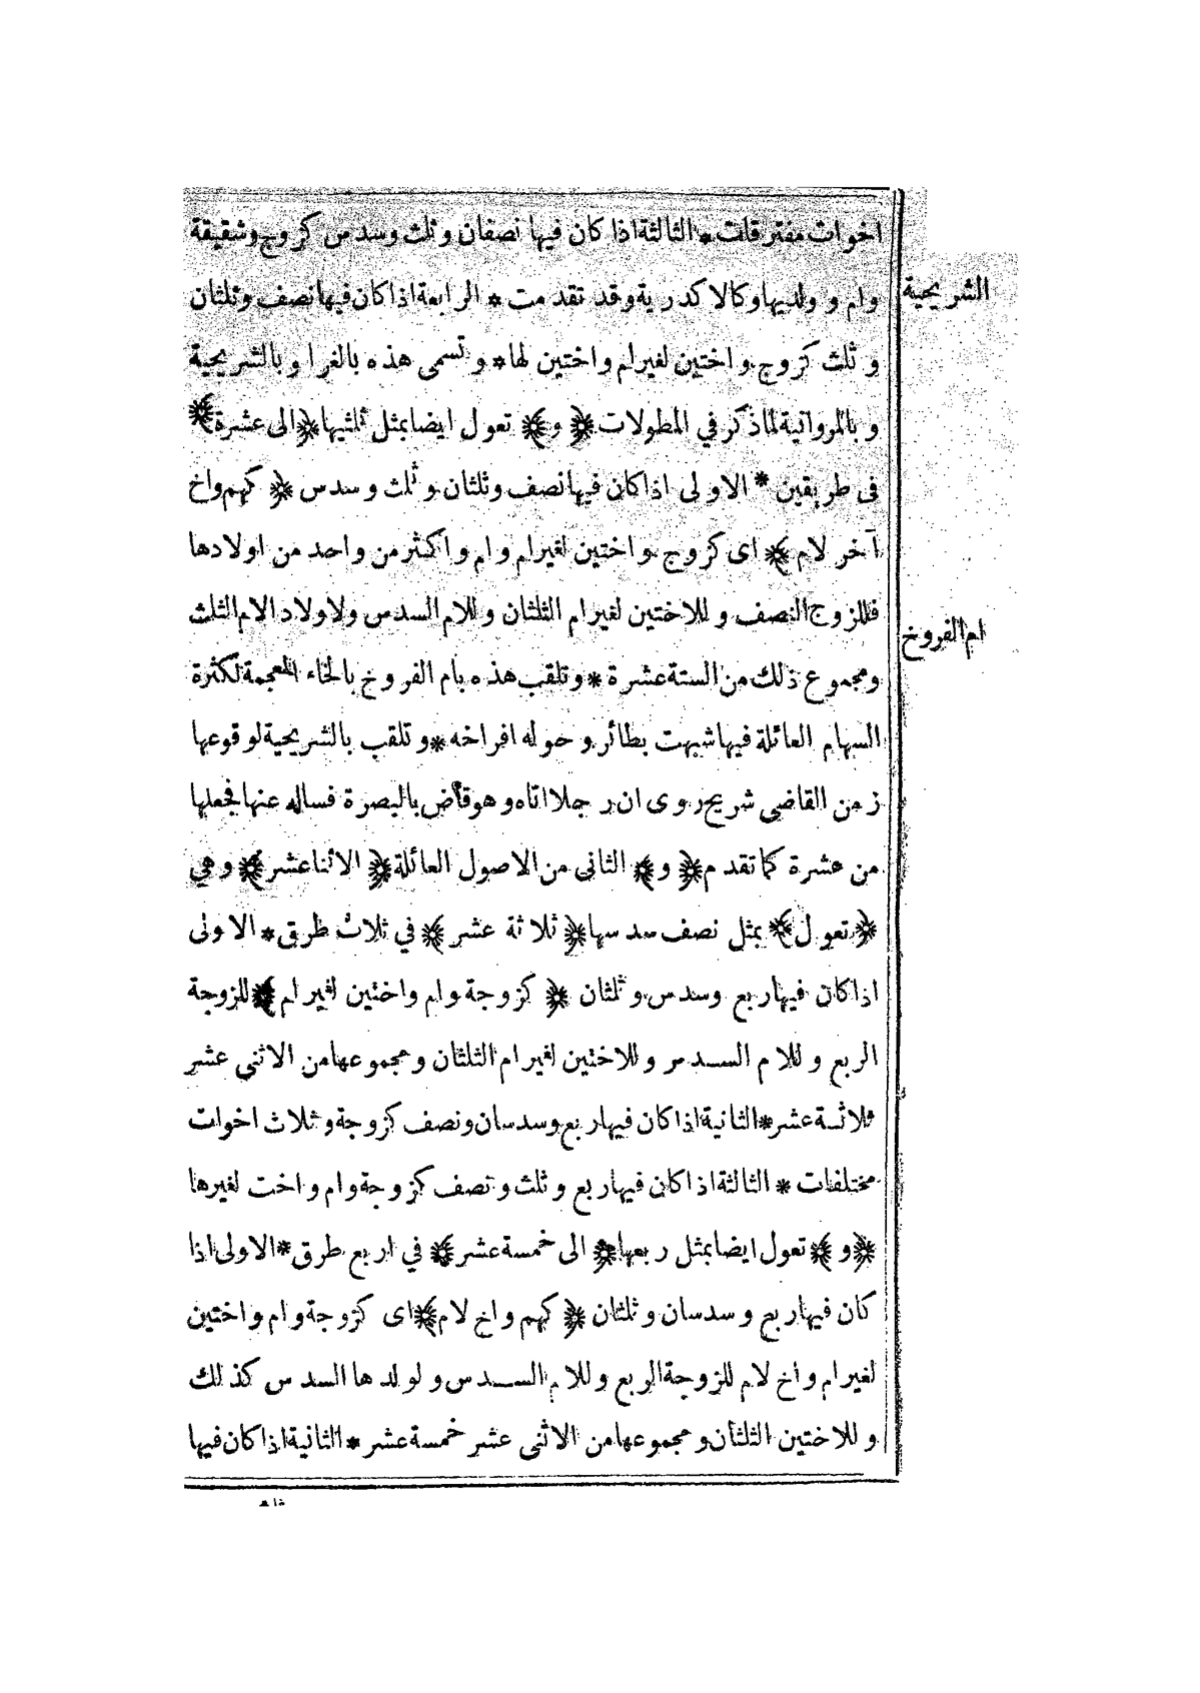 اخوات مفترقات * الثالثة اذا كان فيها نصفان وثلث وسدس كزوج وشقيقة
وام وولديها وكالاكدرية وقد تقدمت * الرابعة اذا كان فيها نصف وثلثان
الشريحية
وثلث كزوج واختين لغيرام واختين لها * وتسمى هذه بالغرا وبالشريحية
وبالمروانية لما ذكر في المطولات ﴿ و ﴾ تعول ايضا بمثل ثلثيها ﴿ الى عشرة ﴾
فى طريقين * الاولى اذا كان فيها نصف وثلثان وثلث وسدس ﴿ كهم واخ
آخر لام ﴾ اى كزوج واختين لغيرام وام واكثر من واحد من اولادها
فللزوج النصف وللاختين لغيرام الثلثان وللام السدس ولاولاد الام الثلث
ام الفروخ
ومجموع ذلك من الستة عشرة * وتلقب هذه بام الفروخ بالخاء المعجمة لكثرة
السهام العائلة فيها شبهت بطائر وحوله افراخه * وتلقب بالشريحية لوقوعها
زمن القاضى شريح روى ان رجلا اتاه وهو قاض بالبصرة فساله عنها فجعلها
من عشرة كما تقدم ﴿ و ﴾ الثانى من الاصول العائلة ﴿ الاثنا عشر ﴾ وهي
﴿ تعول ﴾ بمثل نصف سدسها ﴿ ثلاثة عشر ﴾ في ثلاث طرق * الاولى
اذا كان فيها ربع وسدس وثلثان ﴿ كزوجة وام واختين لغيرام ﴾ للزوجة
الربع وللام السدس وللاختين لغيرام الثلثان ومجموعها من الاثنى عشر
ثلاثة عشر * الثانية اذا كان فيها ربع وسدسان ونصف كزوجة وثلاث اخوات
مختلفات * الثالثة اذا كان فيها ربع وثلث ونصف كزوجة وام واخت لغيرها
﴿ و ﴾ تعول ايضا بمثل ربعها ﴿ الى خمسة عشر ﴾ في اربع طرق * الاولى اذا
كان فيها ربع وسدسان وثلثان ﴿ كهم واخ لام ﴾ اى كزوجة وام واختين
لغيرام واخ لام للزوجة الربع وللام السدس ولولدها السدس كذلك
وللاختين الثلثان ومجموعها من الاثنى عشر خمسة عشر * الثانية اذا كان فيها